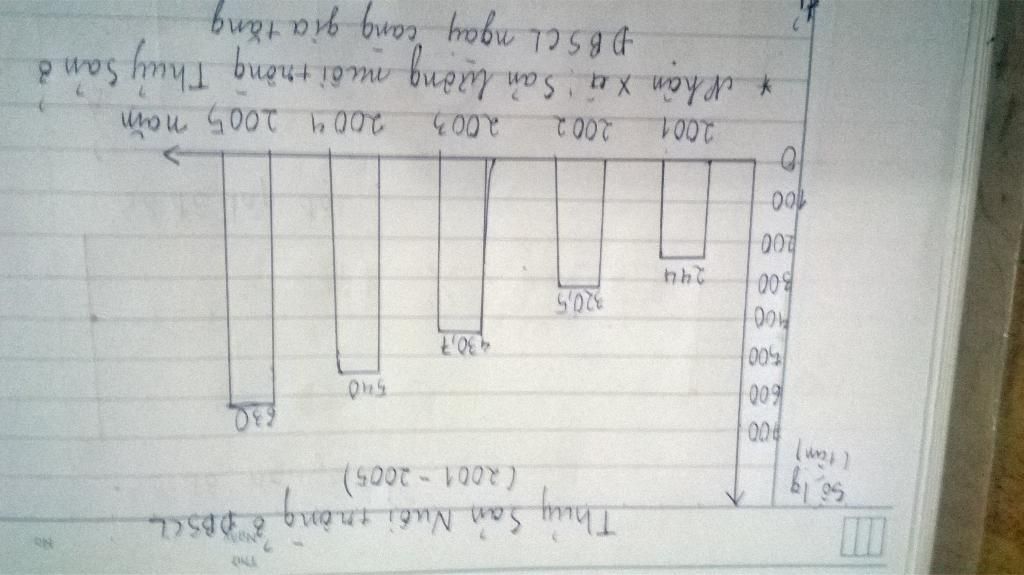 Thứ
No
Thủy Sản Nuôi trồng ở ĐBSCL
(2001 - 2005)
Số lg
(tấn)
700
600
500
400
300
200
100
0
244
320,5
430,7
540
630
2001 2002 2003 2004 2005 năm
* Nhận xét: Sản lượng nuôi trồng Thủy Sản ở
ĐBSCL ngày càng gia tăng